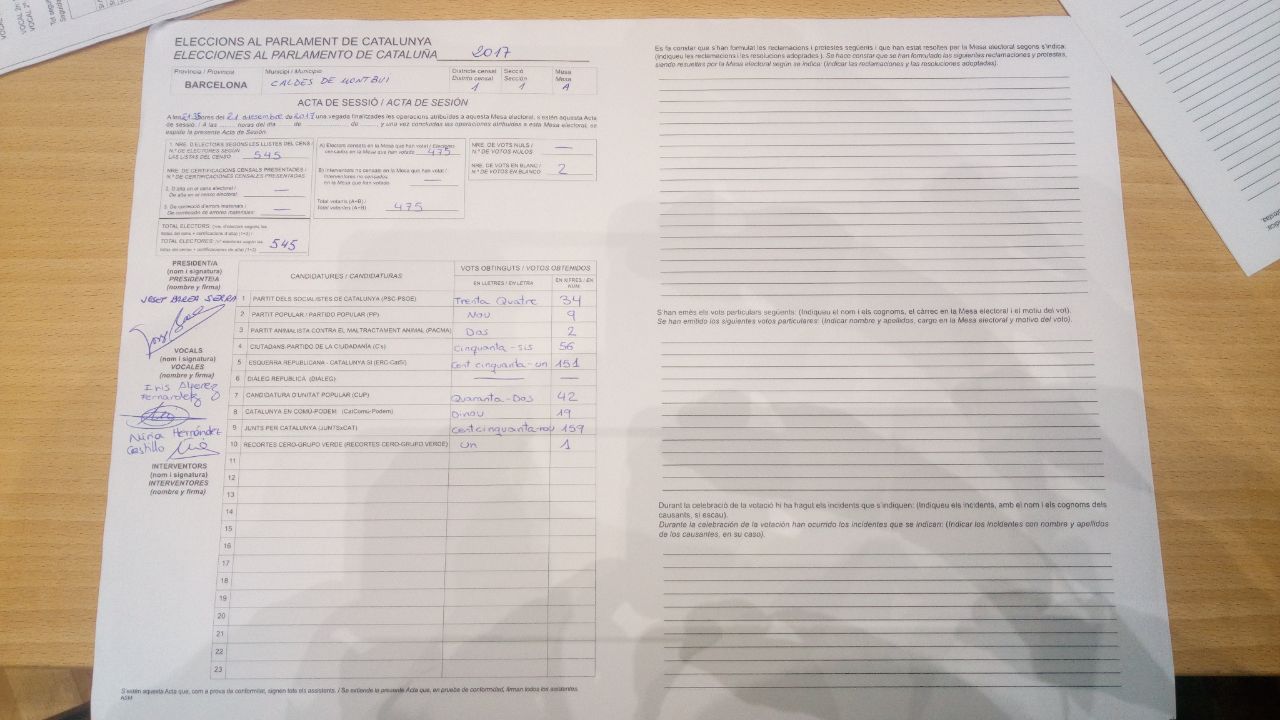 ELECCIONS AL PARLAMENT DE CATALUNYA
ELECCIONES AL PARLAMENTO DE CATALUÑA 2017
Província / Provincia
BARCELONA
Municipi / Municipio
CALDES DE MONTBUI
Districte censal
Distrito censal
1
Secció
Sección
1
Mesa
Mesa
A
ACTA DE SESSIÓ / ACTA DE SESIÓN
A les hores del 21 desembre de 2017 una vegada finalitzades les operacions atribuïdes a aquesta Mesa electoral, s'estén aquesta Acta
de sessió. / A las ........ horas del día ........ de ........ de ........ y una vez concluidas las operaciones atribuidas a esta Mesa electoral, se
expide la presente Acta de Sesión.
1. NRE. D'ELECTORS SEGONS LES LLISTES DEL CENS /
N.º DE ELECTORES SEGÚN
LAS LISTAS DEL CENSO 545
NRE. DE CERTIFICACIONS CENSALS PRESENTADES /
N.º DE CERTIFICACIONES CENSALES PRESENTADAS
2. D'alta en el cens electoral /
De alta en el censo electoral —
3. De correcció d'errors materials /
De corrección de errores materiales —
TOTAL ELECTORS: (nre. d'electors segons les
llistes del cens + certificacions d'alta) (1+2) /
TOTAL ELECTORES: (n.º electores según las
listas del censo + certificaciones de alta) (1+2) 545
A) Electors censats en la Mesa que han votat / Electores
censados en la Mesa que han votado 475
B) Interventors no censats en la Mesa que han votat /
Interventores no censados
en la Mesa que han votado —
Total votants (A+B) /
Total votantes (A+B) 475
NRE. DE VOTS NULS /
N.º DE VOTOS NULOS —
NRE. DE VOTS EN BLANC /
N.º DE VOTOS EN BLANCO 2
PRESIDENT/A
(nom i signatura)
PRESIDENTE/A
(nombre y firma)
JOSEP BAREA SERRA
VOCALS
(nom i signatura)
VOCALES
(nombre y firma)
Iris
Núria Hernández
Castillo
INTERVENTORS
(nom i signatura)
INTERVENTORES
(nombre y firma)
CANDIDATURES / CANDIDATURAS
VOTS OBTINGUTS / VOTOS OBTENIDOS
EN LLETRES / EN LETRA
EN NÚM.
1 PARTIT DELS SOCIALISTES DE CATALUNYA (PSC-PSOE) Trenta Quatre 34
2 PARTIT POPULAR / PARTIDO POPULAR (PP) Nou 9
3 PARTIT ANIMALISTA CONTRA EL MALTRACTAMENT ANIMAL (PACMA) Dos 2
4 CIUTADANS-PARTIDO DE LA CIUDADANÍA (C's) Cinquanta-sis 56
5 ESQUERRA REPUBLICANA - CATALUNYA SÍ (ERC-CatSí) Cent cinquanta-un 151
6 DIÀLEG REPUBLICÀ (DIÀLEG) — —
7 CANDIDATURA D'UNITAT POPULAR (CUP) Quaranta-Dos 42
8 CATALUNYA EN COMÚ-PODEM (CatComú-Podem) Dinou 19
9 JUNTS PER CATALUNYA (JUNTSxCAT) Cent cinquanta-nou 159
10 RECORTES CERO-GRUPO VERDE (RECORTES CERO-GRUPO VERDE) un 1
11
12
13
14
15
16
17
18
19
20
21
22
23
S'estén aquesta Acta que, com a prova de conformitat, signen tots els assistents. / Se extiende la presente Acta que, en prueba de conformidad, firman todos los asistentes.
Es fa constar que s'han formulat les reclamacions i protestes següents i que han estat resoltes per la Mesa electoral segons s'indica:
(Indiqueu les reclamacions i les resolucions adoptades). Se hace constar que se han formulado las siguientes reclamaciones y protestas,
siendo resueltas por la Mesa electoral según se indica: (Indicar las reclamaciones y las resoluciones adoptadas).
S'han emès els vots particulars següents: (Indiqueu el nom i els cognoms, el càrrec en la Mesa electoral i el motiu del vot).
Se han emitido los siguientes votos particulares: (Indicar nombre y apellidos, cargo en la Mesa electoral y motivo del voto).
Durant la celebració de la votació hi ha hagut els incidents que s'indiquen: (Indiqueu els incidents, amb el nom i els cognoms dels
causants, si escau).
Durante la celebración de la votación han ocurrido los incidentes que se indican: (Indicar los incidentes con nombre y apellidos
de los causantes, en su caso).